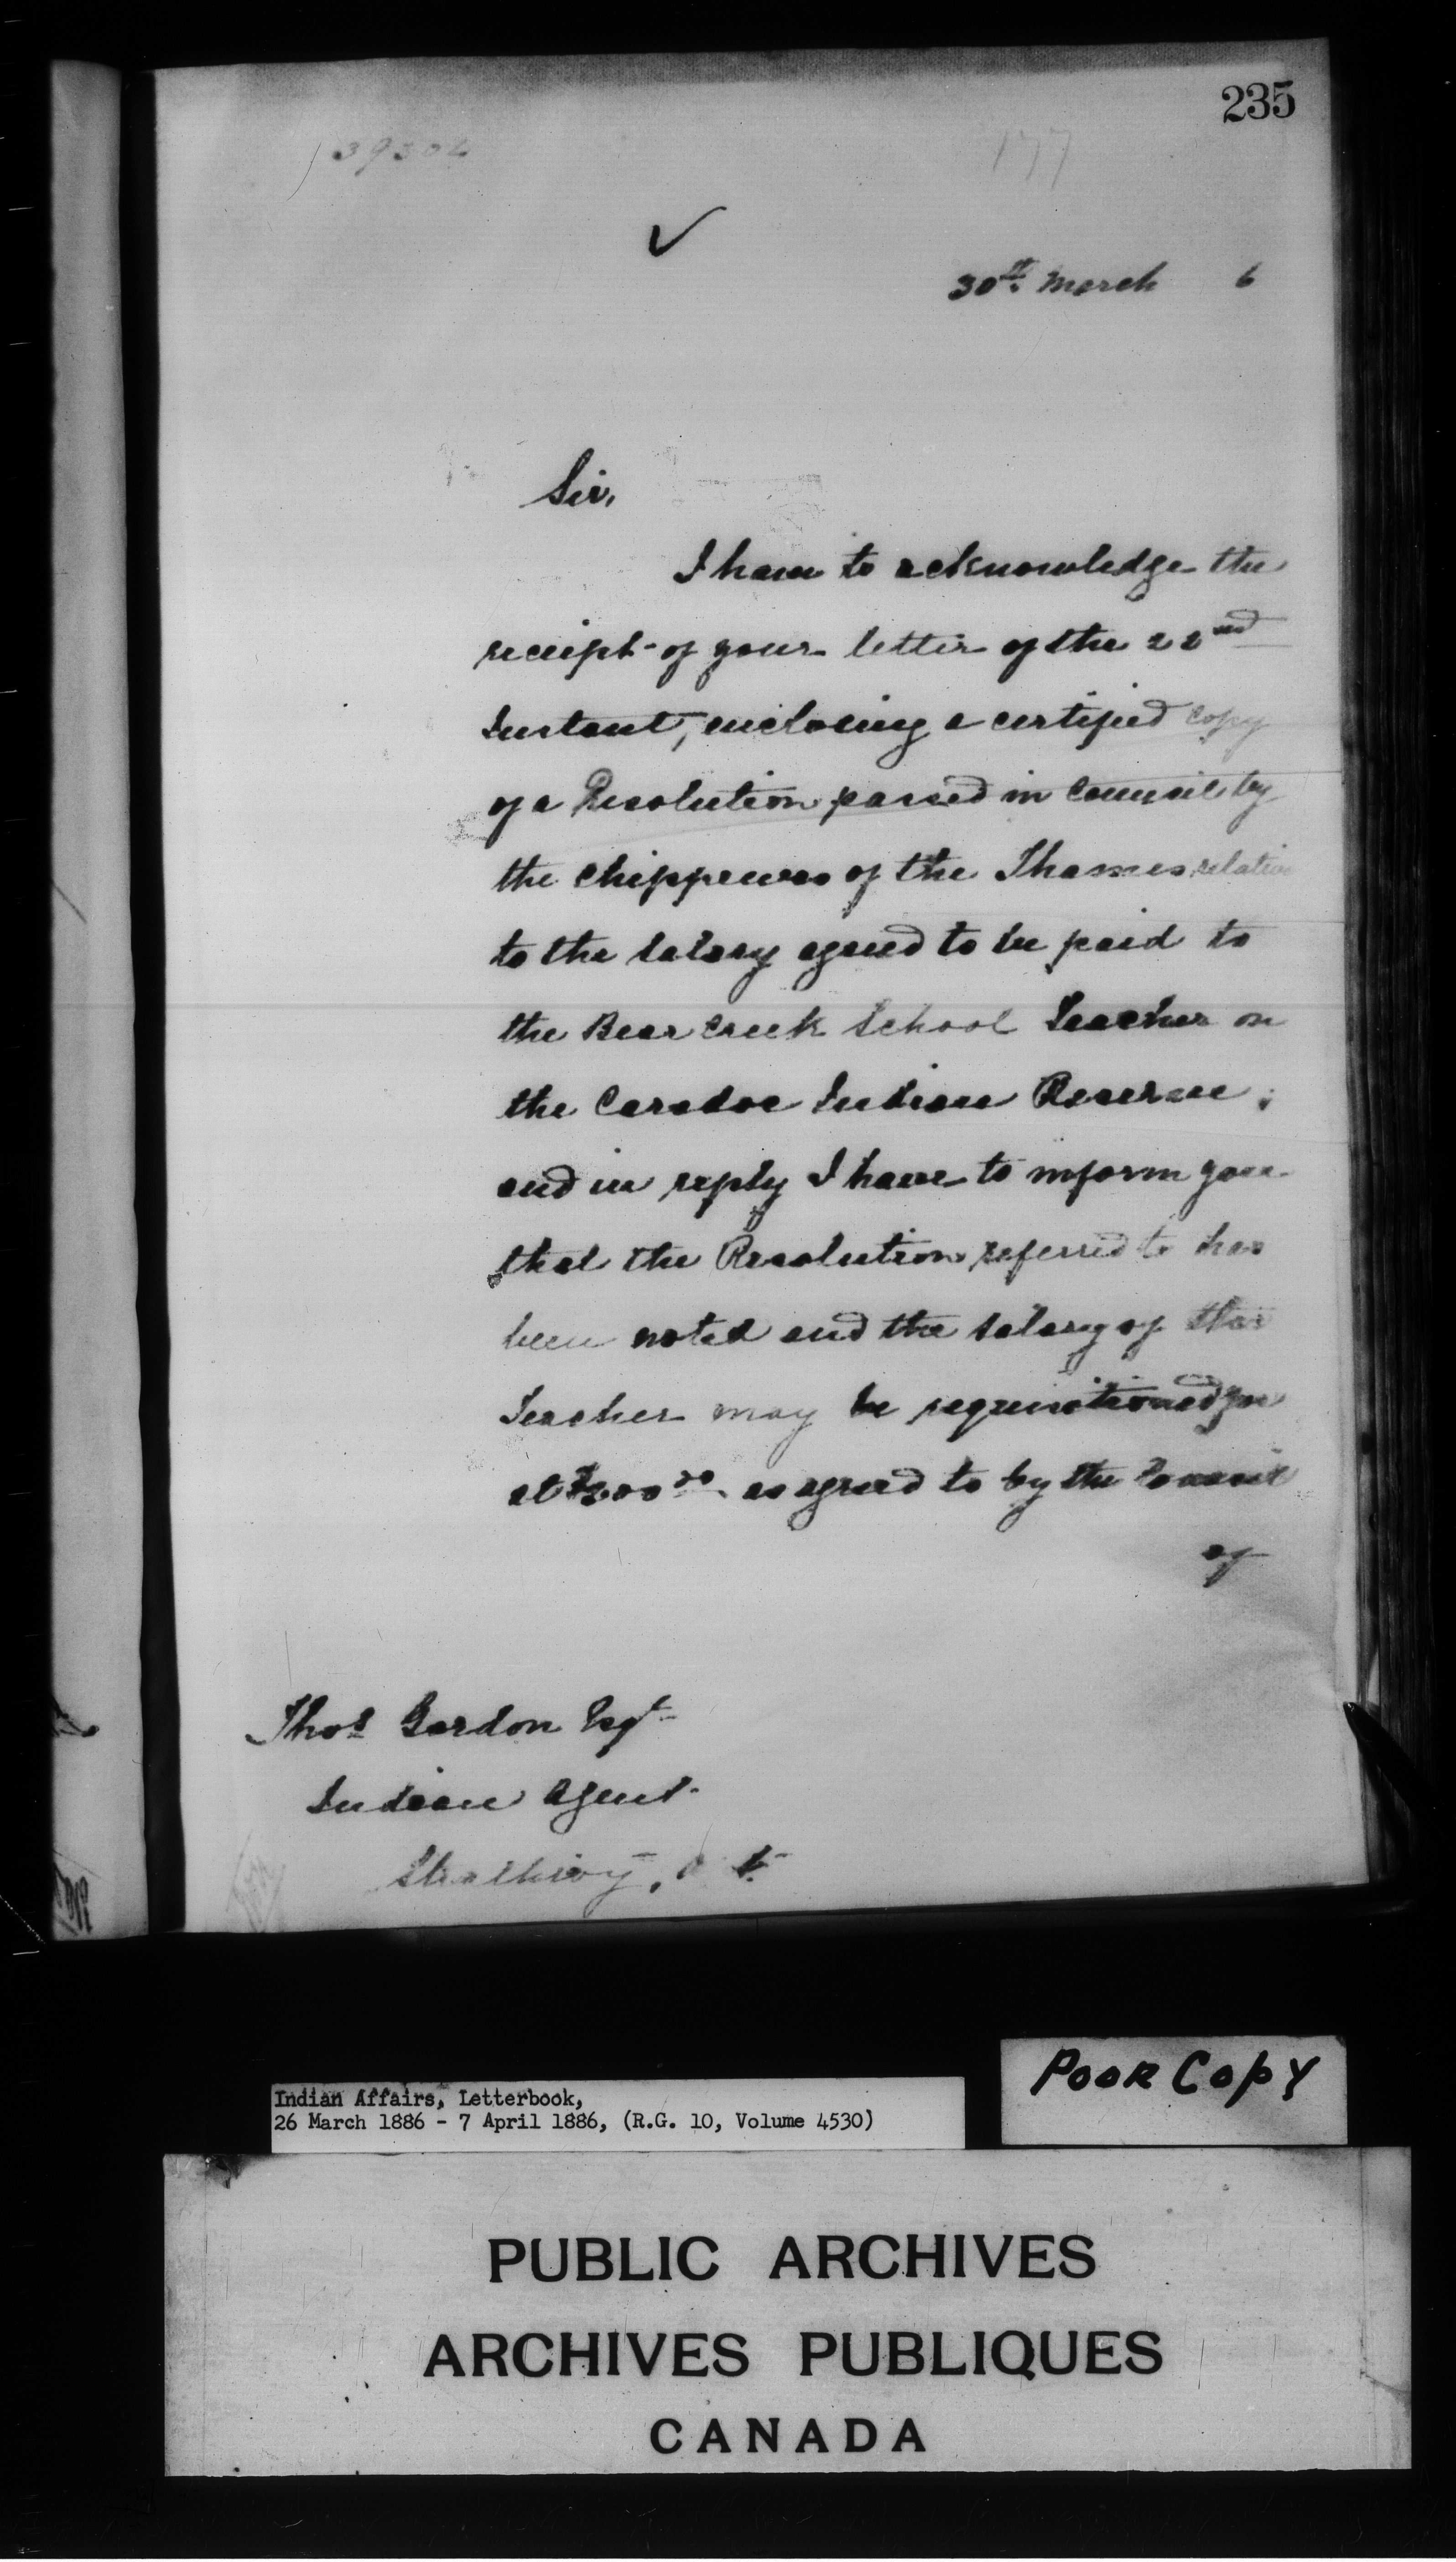 235
39304
177
30th March 6
Sir,
I have to acknowledge the
receipt of your letter of the 22nd
Instant, enclosing a certified copy
of a Resolution passed in Council by
the Chippewas of the Thames relative
to the salary agreed to be paid to
the Bear Creek School Teacher on
the Caradoc Indian Reserve;
and in reply I have to inform you
that the Resolution referred to has
been noted and the salary of the
Teacher may be requisitioned for
at as agreed to by the Council
of
Thos Gordon Esqr
Indian Agent
Strathroy,
Indian Affairs, Letterbook,
26 March 1886 - 7 April 1886, (R.G. 10, Volume 4530)
POOR COPY
PUBLIC ARCHIVES
ARCHIVES PUBLIQUES
CANADA